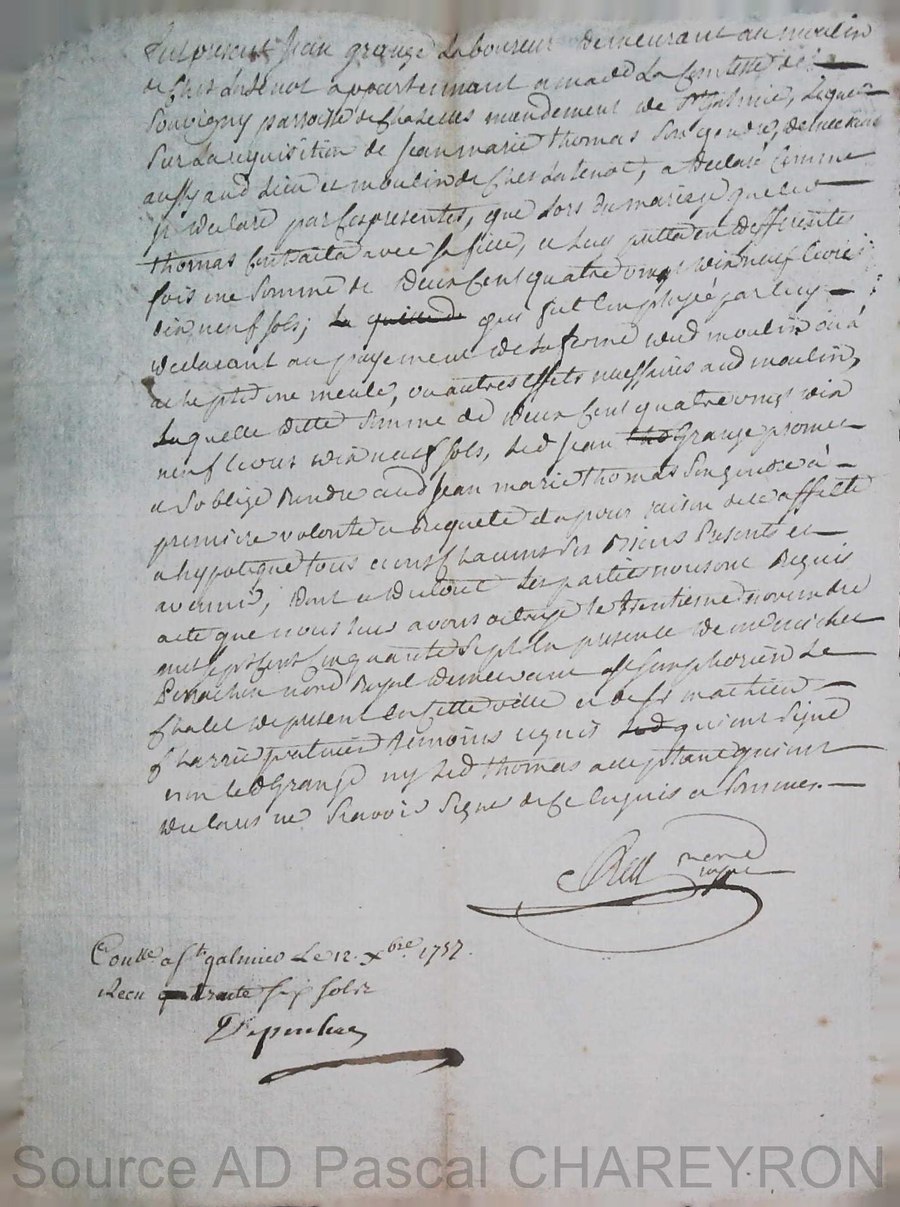 Fut present Jean grange Laboureur demeurant au moulin
de Chez Latenot appartenant a made La Comtesse de
Souvigny parroisse de Chatelus mandement de St galmie, Lequel
Sur La requisition de Jean marie thomas Son gendre, demeurant
aussy aud Lieu et moulin de Chez Latenot, a declaré Comme
il declare par Ces presentes, que Lors du mariage que led
thomas Contracta avec Sa fille, il Luy
fois une Somme de deux Cent quatre vingt dix neuf Livres
dix neuf sols; qui fut Employée par Luy
declarant au payement de La ferme dud moulin ou a
achepté une meule, ou autres Effets necessaires aud moulin,
Laquelle ditte Somme de deux Cent quatre vingt dix
neuf Livres dix neuf sols, Led Jean Grange promet
et Soblige rendre aud Jean marie thomas Son gendre a
premiere volonté et requete et a pour raison de ce affecté
et hypotequé tous et uns Chacuns Ses Biens presents et
avenir, dont et du tout Les parties nous ont requis
acte que nous Leur avons octroyé Le trentieme novembre
mil sept Cent Cinquante Sept En presence de me
nore Royal demeurant a St Simphorien Le
Chatel de present En Cette ville et de Sr mathieu
temoins requis qui ont Signé
non Led Grange ny Led thomas acceptant qui ont
declaré ne Scavoir Signer de Ce Enquis et Sommés.
nore
royal
Conllé a St galmier Le 12 Xbre 1757.
Recu Six Sols
Source AD Pascal CHAREYRON